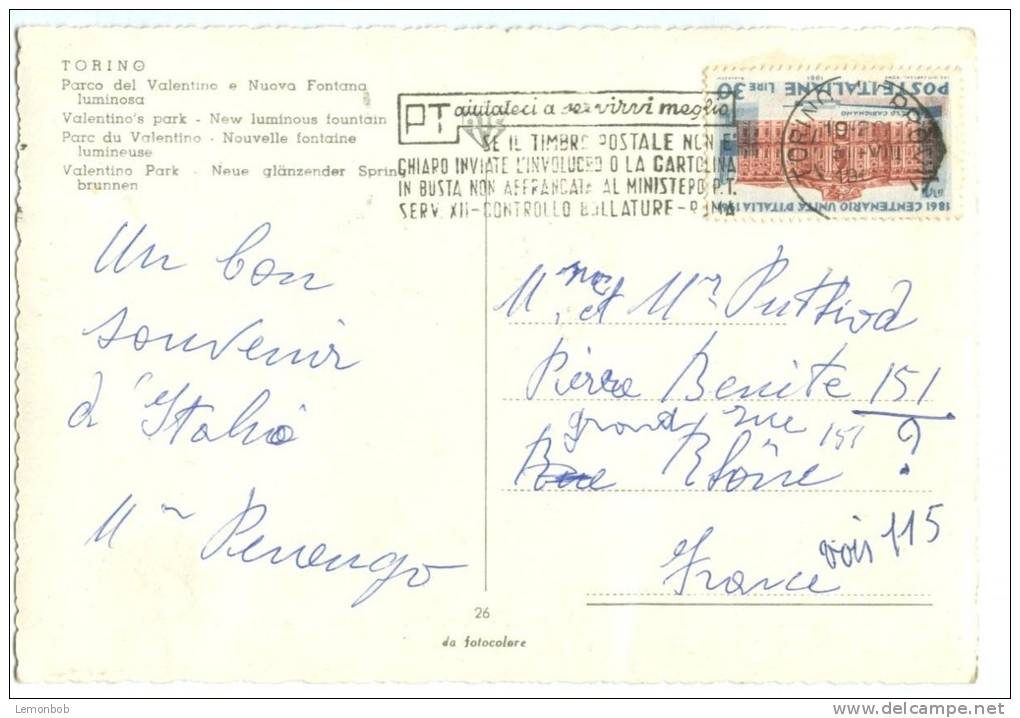 TORINO
Parco del Valentino e Nuova Fontana
luminosa
Valentino's park - New luminous fountain
Parc du Valentino - Nouvelle fontaine
lumineuse
Valentino Park - Neue glänzender Spring
brunnen
PT aiutateci a servirvi meglio
SE IL TIMBRO POSTALE NON E'
CHIARO INVIATE L'INVOLUCRO O LA CARTOLINA
IN BUSTA NON AFFRANCATA AL MINISTERO P.T.
SERV. XII - CONTROLLO BOLLATURE - ROMA
POSTE ITALIANE LIRE 30
1961
PALAZZO CARIGNANO
1861 CENTENARIO UNITÀ D'ITALIA 1961
TORINO
19
Un bon
souvenir
d'Italie
Mme et Mr
Pierre Benite 151
grand rue 151 ?
Rhône
France
vois 115
26
da fotocolore
Lemonbob
www.delcampe.net